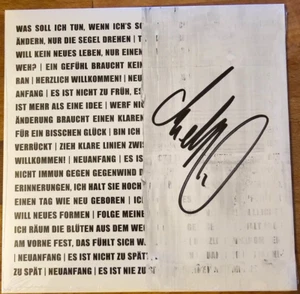 WAS SOLL ICH TUN, WENN ICH'S
ÄNDERN, NUR DIE SEGEL DREHEN | T
WILL KEIN NEUES LEBEN, NUR EINEN
WEH? | EIN GEFÜHL BRAUCHT KEIN
RAN | HERZLICH WILLKOMMEN! | NEU
ANFANG | ES IST NICHT ZU FRÜH, ES
IST MEHR ALS EINE IDEE | WERF NIC
ÄNDERUNG BRAUCHT EINEN KLAREN
FÜR EIN BISSCHEN GLÜCK | BIN ICH
VERRÜCKT | ZIEH KLARE LINIEN ZWIS
WILLKOMMEN! | NEUANFANG | ES IS
NICHT IMMUN GEGEN GEGENWIND
ERINNERUNGEN, ICH HALT SIE HOCH
EINEN TAG WIE NEU GEBOREN | ICH
WILL NEUES FORMEN | FOLGE MEINE
ICH RÄUM DIE BLÜTEN AUS DEM WE
AM VORNE FEST, DAS FÜHLT SICH W
| NEUANFANG | ES IST NICHT ZU SPÄT
ZU SPÄT | NEUANFANG | ES IST NIE ZU